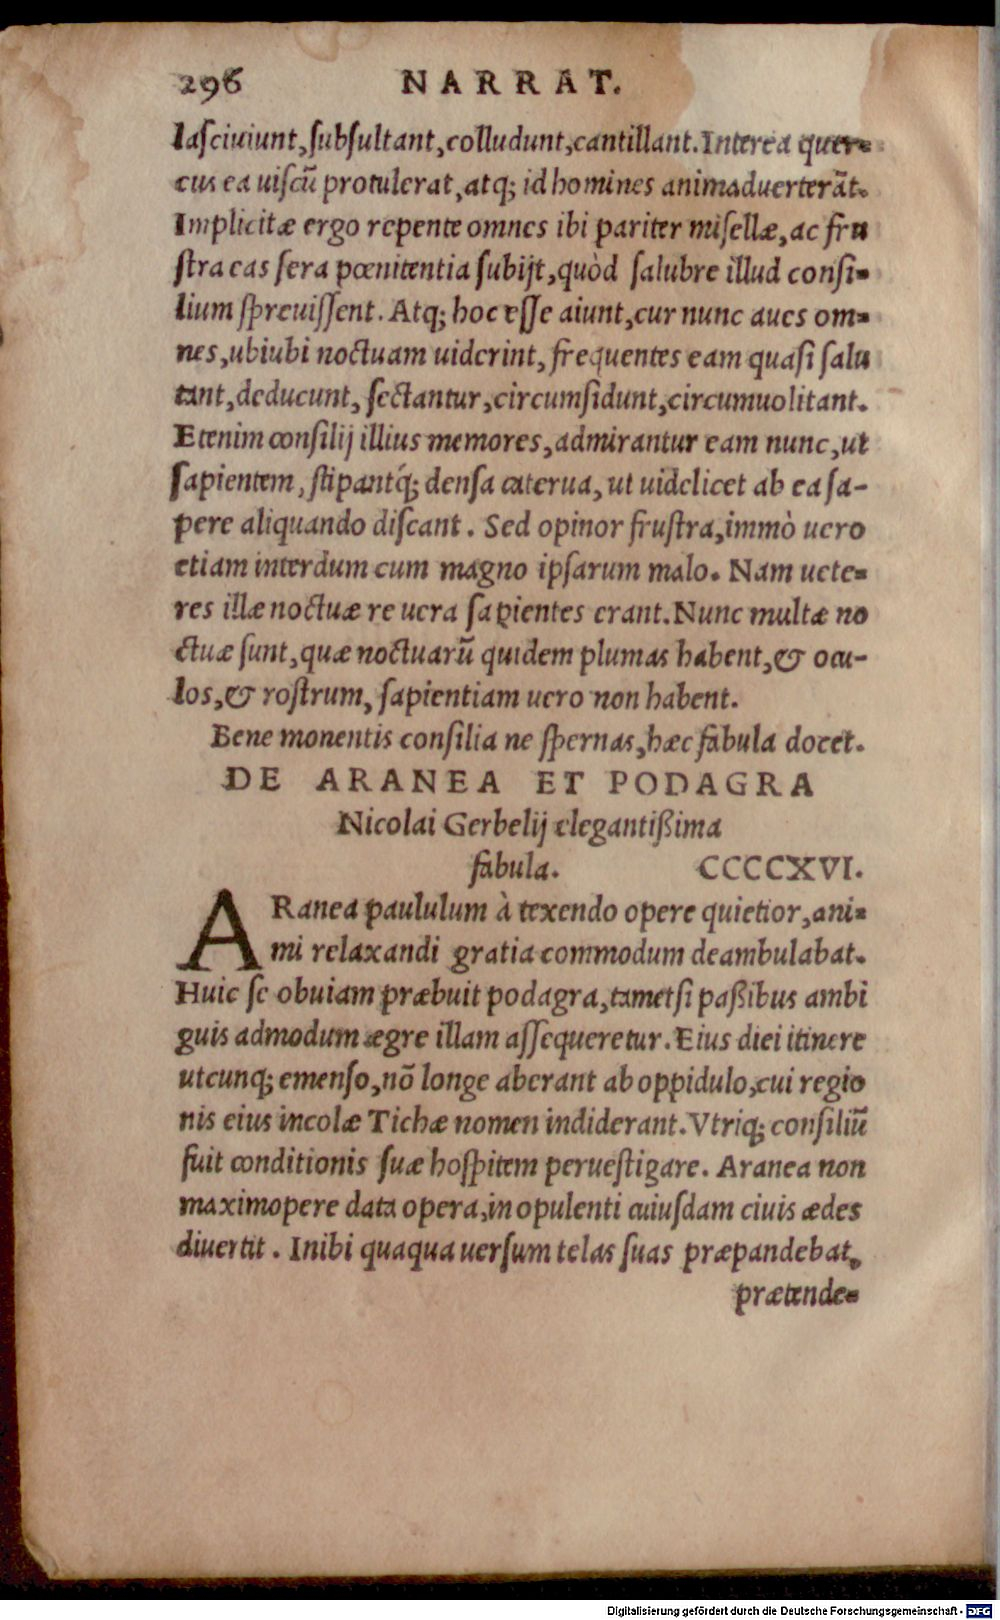 296 NARRAT.
laſciuiunt,ſubſultant,colludunt,cantillant.Interea quer=
cus ea uiſcũ protulerat,atq; id homines animaduerterãt.
Implicitæ ergo repente omnes ibi pariter miſellæ,ac fru
ſtra eas ſera pœnitentia ſubijt,quòd ſalubre illud conſi=
lium ſpreuiſſent. Atq; hoc eſſe aiunt,cur nunc aues om=
nes,ubiubi noctuam uiderint, frequentes eam quaſi ſalu
tant,deducunt, ſectantur,circumſidunt,circumuolitant.
Etenim conſilij illius memores,admirantur eam nunc,ut
ſapientem, ſtipantq́; denſa caterua, ut uidelicet ab ea ſa-
pere aliquando diſcant. Sed opinor fruſtra,immò uero
etiam interdum cum magno ipſarum malo. Nam uete=
res illæ noctuæ re uera ſapientes erant. Nunc multæ no
ctuæ ſunt,quæ noctuarũ quidem plumas habent,& ocu-
los,& roſtrum, ſapientiam uero non habent.
Bene monentis conſilia ne ſpernas,hæc fabula docet.
DE ARANEA ET PODAGRA
Nicolai Gerbelij elegantißima
fabula. CCCCXVI.
ARanea paululum à texendo opere quietior,ani=
mi relaxandi gratia commodum deambulabat.
Huic ſe obuiam præbuit podagra,tametſi paßibus ambi
guis admodum ægre illam aſſequeretur. Eius diei itinere
utcunq; emenſo,nõ longe aberant ab oppidulo,cui regio
nis eius incolæ Tichæ nomen indiderant. Vtriq; conſiliũ
fuit conditionis ſuæ hoſpitem perueſtigare. Aranea non
maximopere data opera,in opulenti cuiuſdam ciuis ædes
diuertit. Inibi quaqua uerſum telas ſuas præpandebat,
prætende=
Digitalisierung gefördert durch die Deutsche Forschungsgemeinschaft - DFG